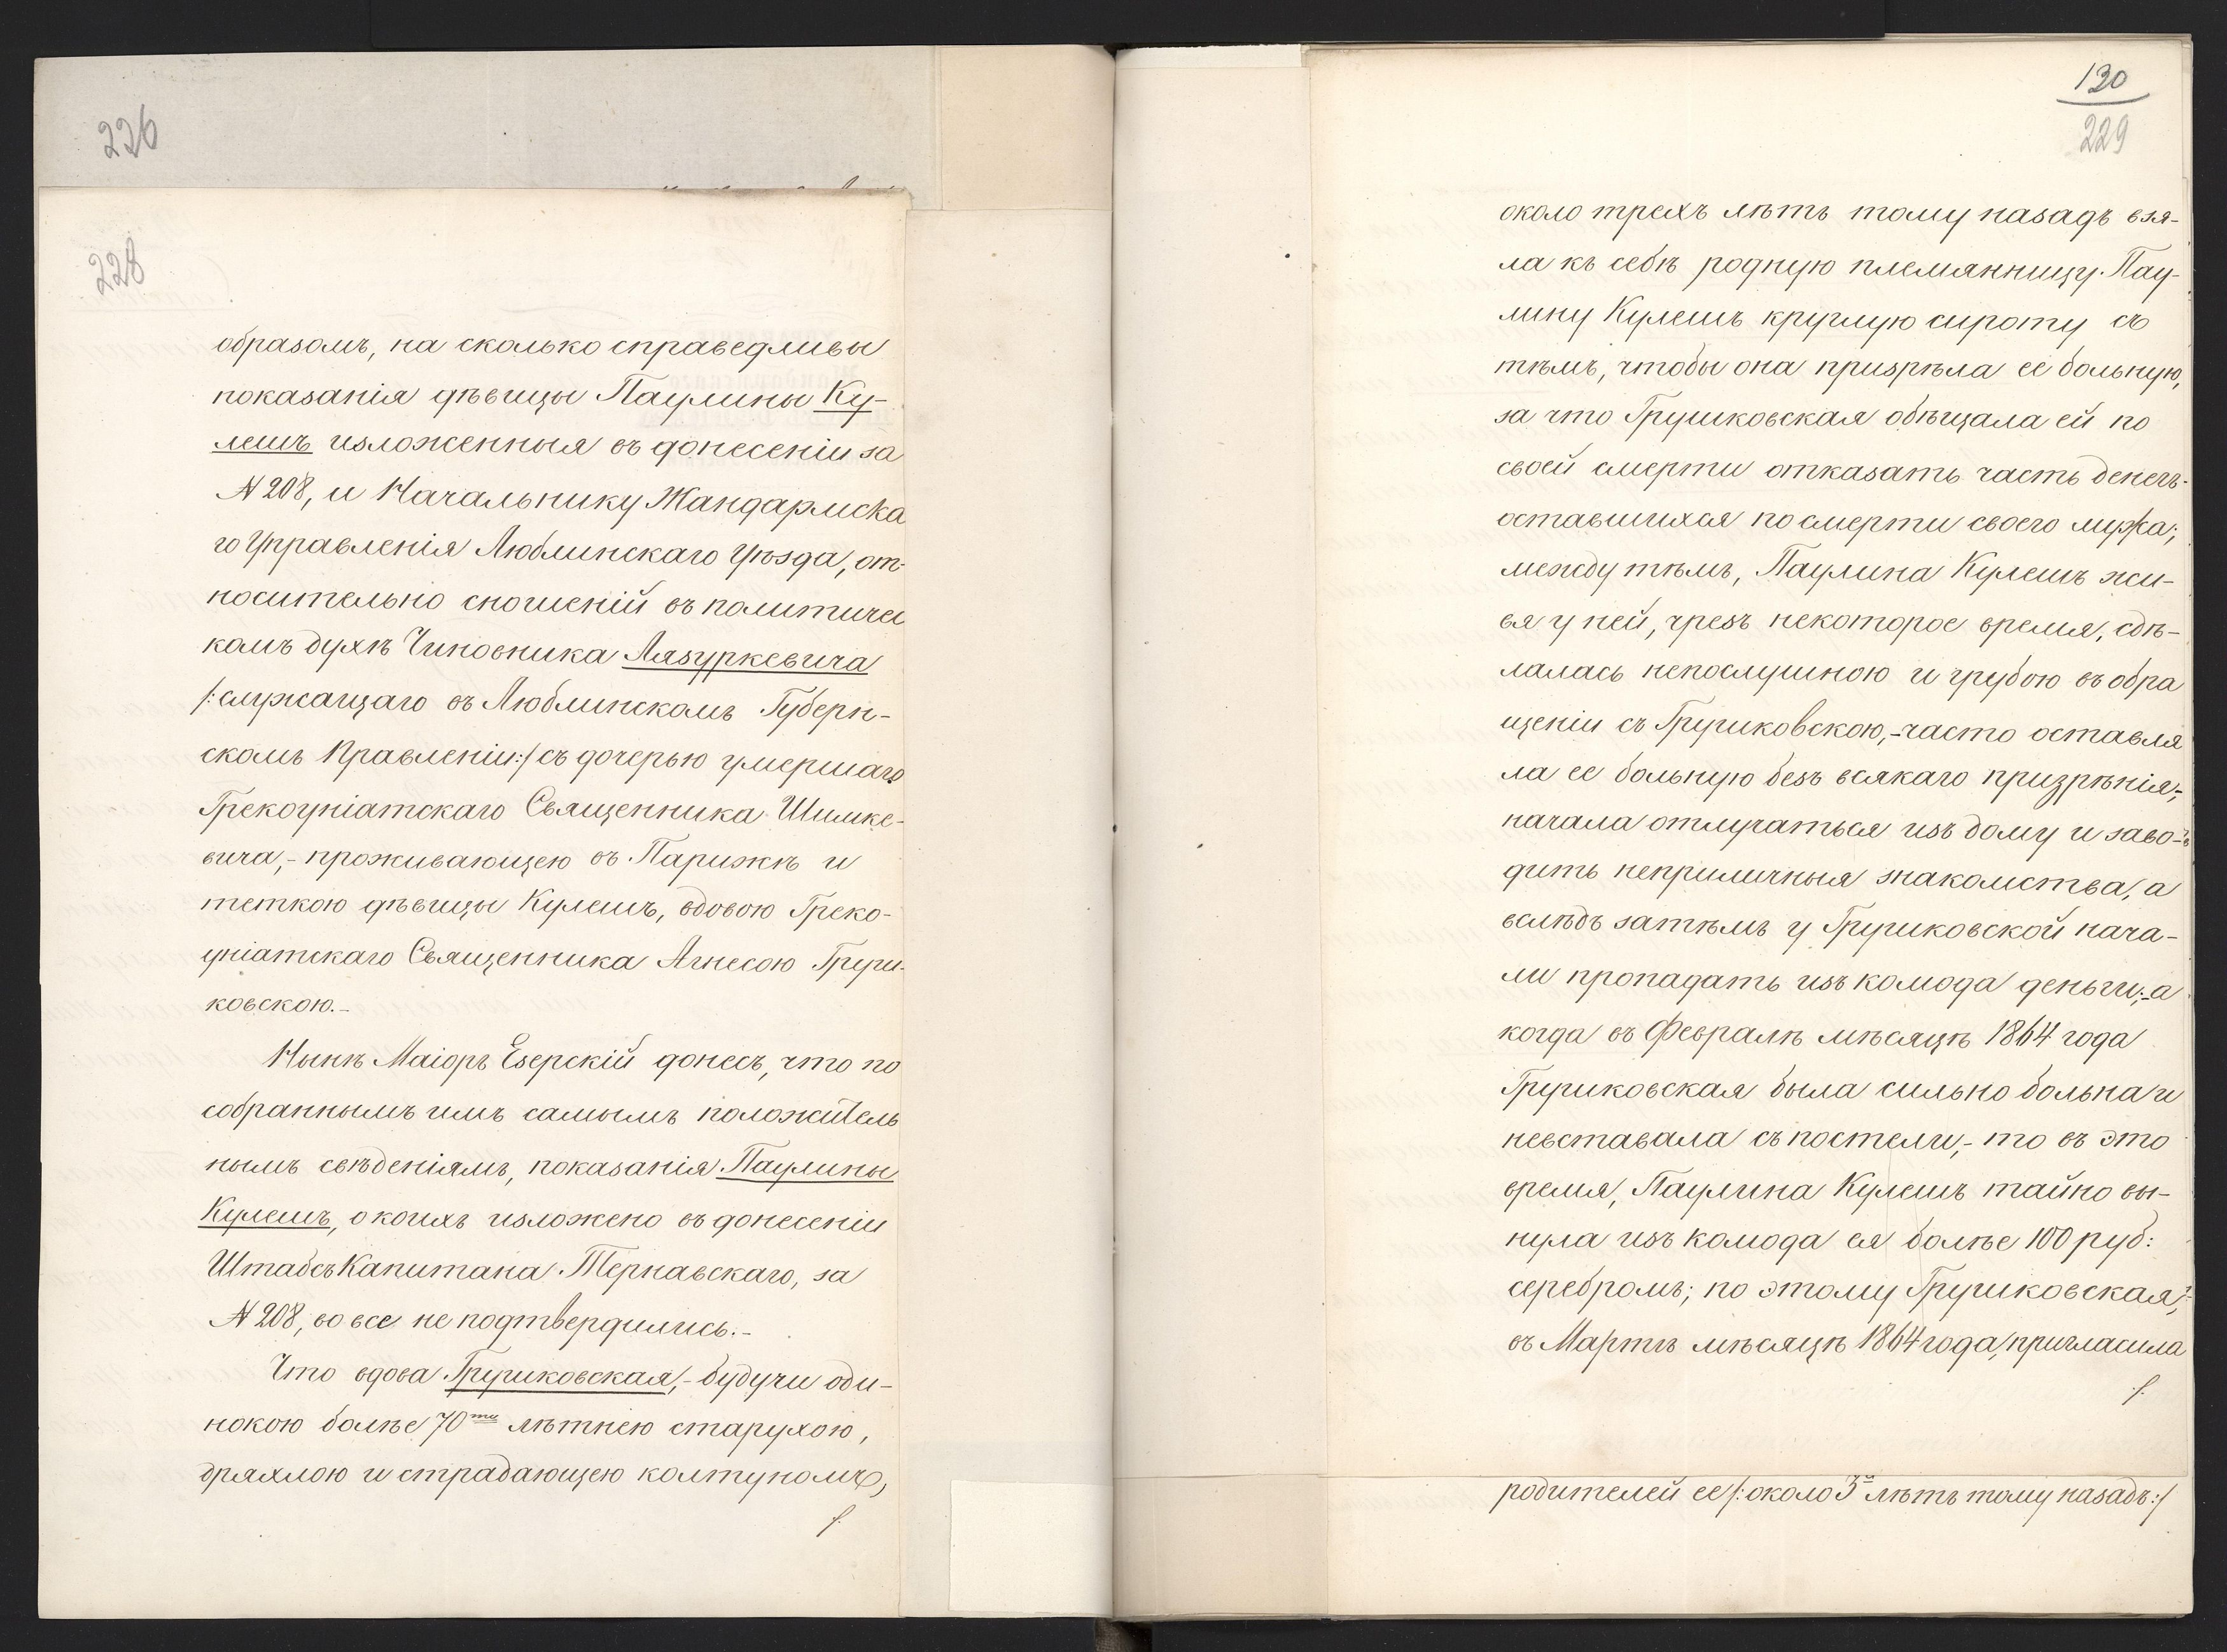 226
228
образомъ, на сколько справедливы
показанія дѣвицы Паулины Ку-
лешъ изложенныя въ донесеніи за
№ 208, и Начальнику Жандармска
го Управленія Люблинскаго Уѣзда, от-
носительно сношеній въ политичес
комъ духѣ Чиновника Лязуркевича
/:служащаго въ Люблинскомъ Губерн-
скомъ Правленіи:/ съ дочерью умершаго
Грекоуніатскаго Священника Шимке-
вича,- проживающею въ Парижѣ и
теткою дѣвицы Кулешъ, вдовою Греко-
уніатскаго Священника Агнесою Груш-
ковскою.-
Нынѣ Маіоръ Езерскій донесъ, что по
собраннымъ имъ самымъ положитель
нымъ свѣденіямъ, показанія Паулины
Кулешъ, о коихъ изложено въ донесеніи
Штабсъ Капитана Тернавскаго, за
№ 208, во все не подтвердились.-
Что вдова Грушковская,- будучи оди-
нокою болѣе 70ти лѣтнею старухою,
дряхлою и страдающею колтуномъ,
/.
130
229
около трехъ лѣтъ тому назадъ взя-
ла къ себѣ родную племянницу Пау-
лину Кулешъ круглую сироту съ
тѣмъ, чтобы она призрѣла ее больную,
за что Грушковская обѣщала ей по
своей смерти отказать часть денегъ
оставшихся по смерти своего мужа;
между тѣмъ, Паулина Кулешъ жи-
вя у ней, чрезъ некоторое время, сдѣ-
лалась непослушною и грубою въ обра
щеніи съ Грушковскою,- часто оставля
ла ее больную безъ всякаго призрѣнія,-
начала отлучаться изъ дому и заво-
дить неприличныя знакомства, а
вслѣдъ затѣмъ у Грушковской нача-
ли пропадать изъ комода деньги;- а
когда въ Февралѣ мѣсяцѣ 1864 года
Грушковская была сильно больна и
невставала съ постели,- то въ это
время, Паулина Кулешъ тайно вы-
нула изъ комода ея болѣе 100 руб:
серебромъ; по этому Грушковская,
въ Мартѣ мѣсяцѣ 1864 года, пригласила
/.
родителей ее /:около 3й лѣтъ тому назадъ:/